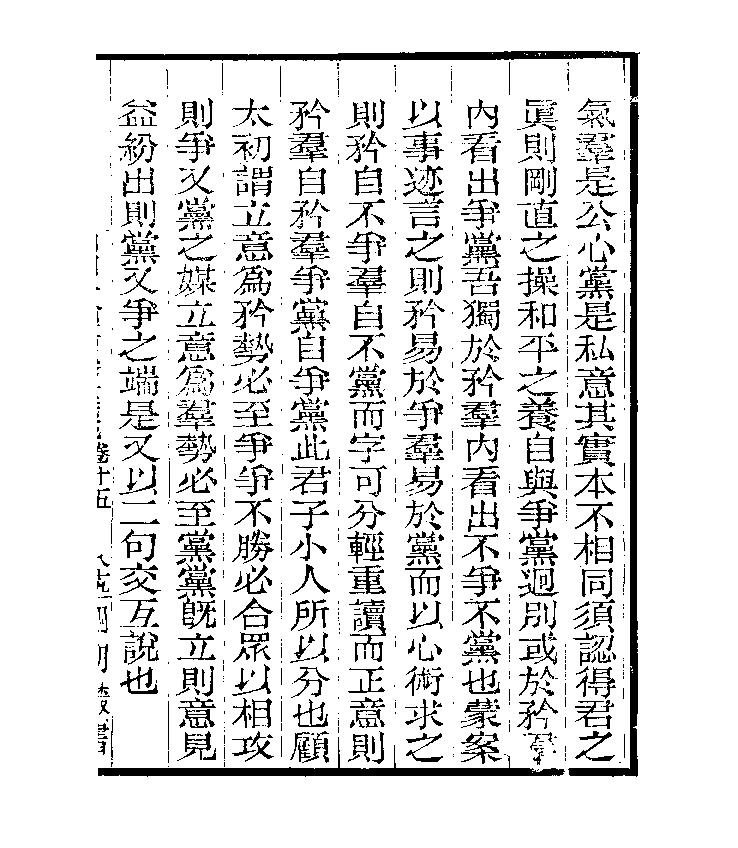 氣羣是公心黨是私意其實本不相同須認得君之
眞則剛直之操和平之養自與爭黨迥別或於矜羣
內看出爭黨吾獨於矜羣內看出不爭不黨也蒙案
以事迹言之則矜易於爭羣易於黨而以心術求之
則矜自不爭羣自不黨而字可分輕重讀而正意則
矜羣自矜羣爭黨自爭黨此君子小人所以分也顧
太初謂立意爲矜勢必至爭爭不勝必合眾以相攻
則爭又黨之媒立意爲羣勢必至黨黨旣立則意見
益紛出則黨又爭之端是又以二句交互說也
卷十五